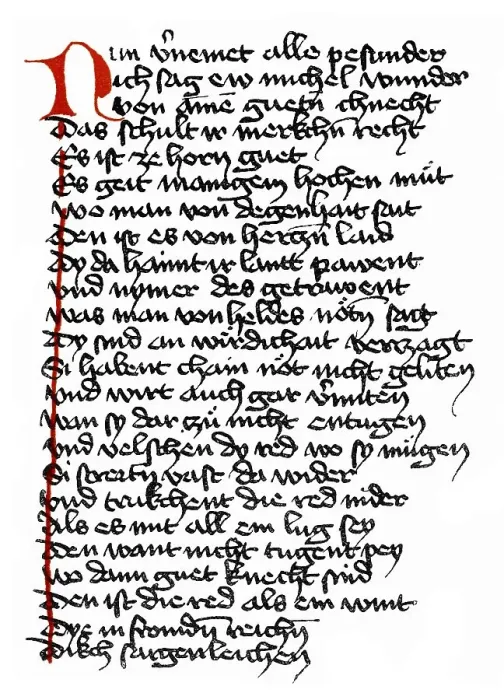 Nun v̄nemet alle pesunder
ich sag ew michel wunder
von aīnē guetn chnecht
Das schult ir merkchn̄ recht
Es ist ze horn guet
Es geit manigem hochen müt
Wo man von degenhait sait
Den ist es von herczn̄ laid
Dy da haimt ir lantt pawent
vnd nymer des getrowent
Was man von heldes nötn̄ sagt
Dy sind an wirdichait verczagt
Si habent chain nöt nicht geliten
vnd wirt auch gar v̄miten
wan sy dar zü nicht entugen
vnd velschen dy red wo sy mügen
Si streitn vast da wider
vnd trukchent die red nider
Als es mit all ein lug sey
Den want nicht tugent pey
Wo dann guet knecht sind
Den ist die red als ein wint
Dye in fromdn̄ reichn̄
Dikch